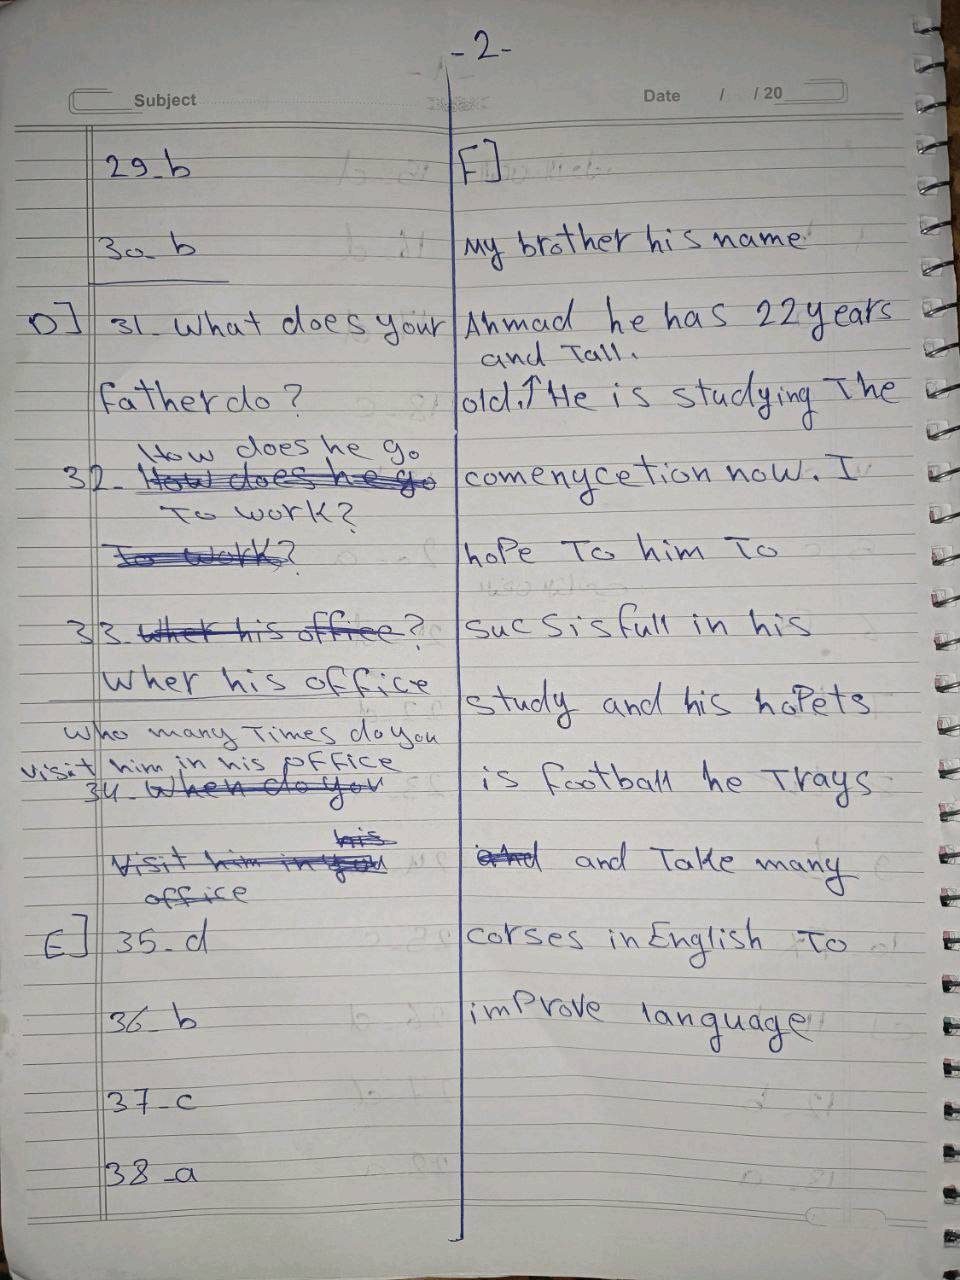 - 2 -
Subject
Date / / 20
29_b
30_b
D] 31_ What does your
father do?
How does he go
32_ How does he go
To work?
To work?
33_ Wher his office?
Wher his office
Who many Times do you
visit him in his office
34_ When do you
his
visit him in you
office
E] 35_d
36_b
37_c
38_a
F]
My brother his name
Ahmad he has 22 years
and Tall.
old.↑ He is studying The
comenycetion now. I
hope To him To
sucsisfull in his
study and his hopets
is football he Trays
and and Take many
corses in English To
improve language